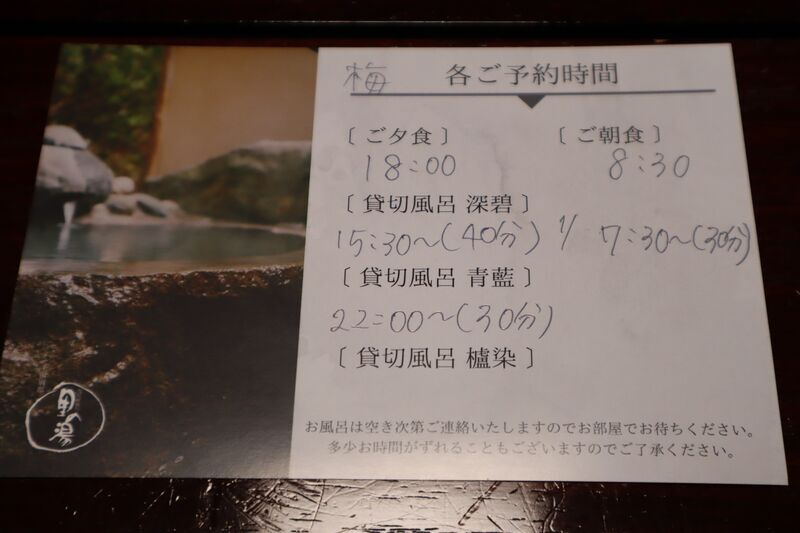 梅 各ご予約時間
〔 ご夕食 〕 〔 ご朝食 〕
18:00 8:30
〔 貸切風呂 深碧 〕
15:30~(40分) 1/ 7:30~(30分)
〔 貸切風呂 青藍 〕
22:00~(30分)
〔 貸切風呂 櫨染 〕
お風呂は空き次第ご連絡いたしますのでお部屋でお待ちください。
多少お時間がずれることもございますのでご了承ください。